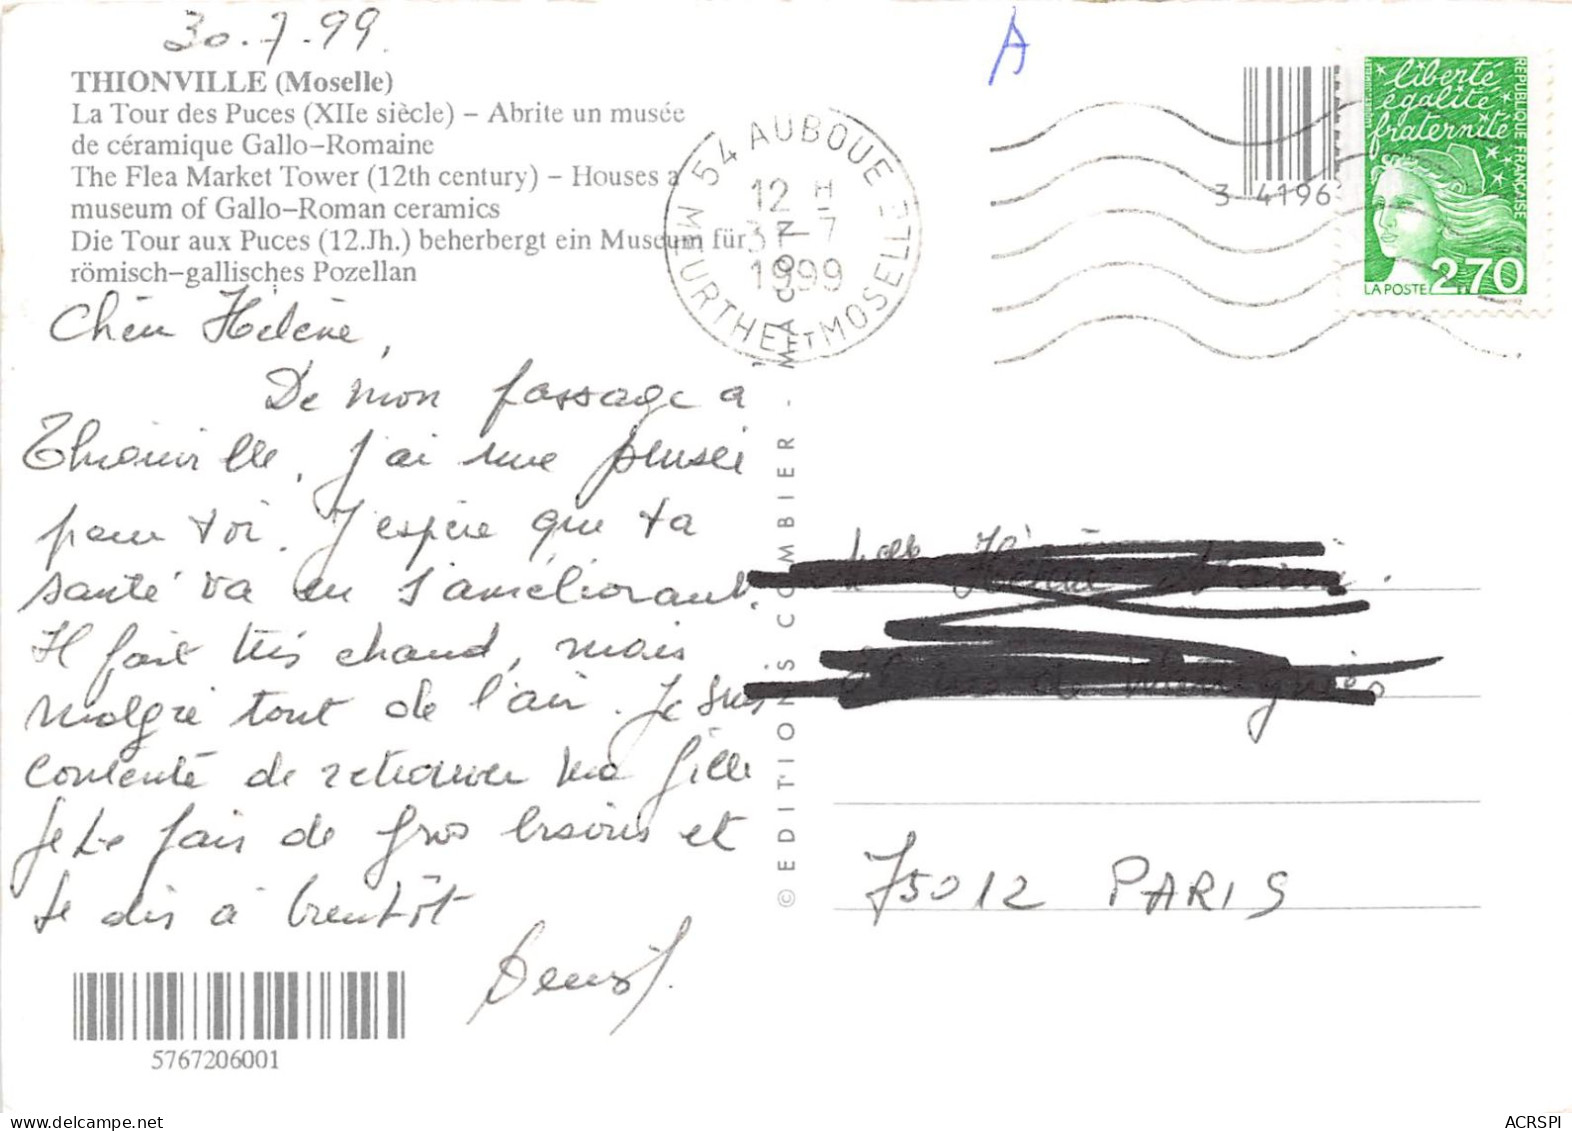 30.7.99
A
THIONVILLE (Moselle)
La Tour des Puces (XIIe siècle) – Abrite un musée
de céramique Gallo–Romaine
The Flea Market Tower (12th century) – Houses a
museum of Gallo–Roman ceramics
Die Tour aux Puces (12.Jh.) beherbergt ein Museum für
römisch–gallisches Pozellan
54 AUBOUE
12 H
31-7
1999
MEURTHE ET MOSELLE
3 4196
liberté
égalité
fraternité
REPUBLIQUE FRANÇAISE
LA POSTE 2,70
Chère Hélène,
De mon passage a
Thionville, j'ai une pensée
pour toi. J'espère que ta
santé va en s'améliorant.
Il fait très chaud, mais
malgré tout de l'air. Je suis
contente de retrouver ma fille
Je te fais de gros bisous et
te dis à bientôt
© EDITIONS COMBIER - MACON
75012 PARIS
5767206001
ACRSPI